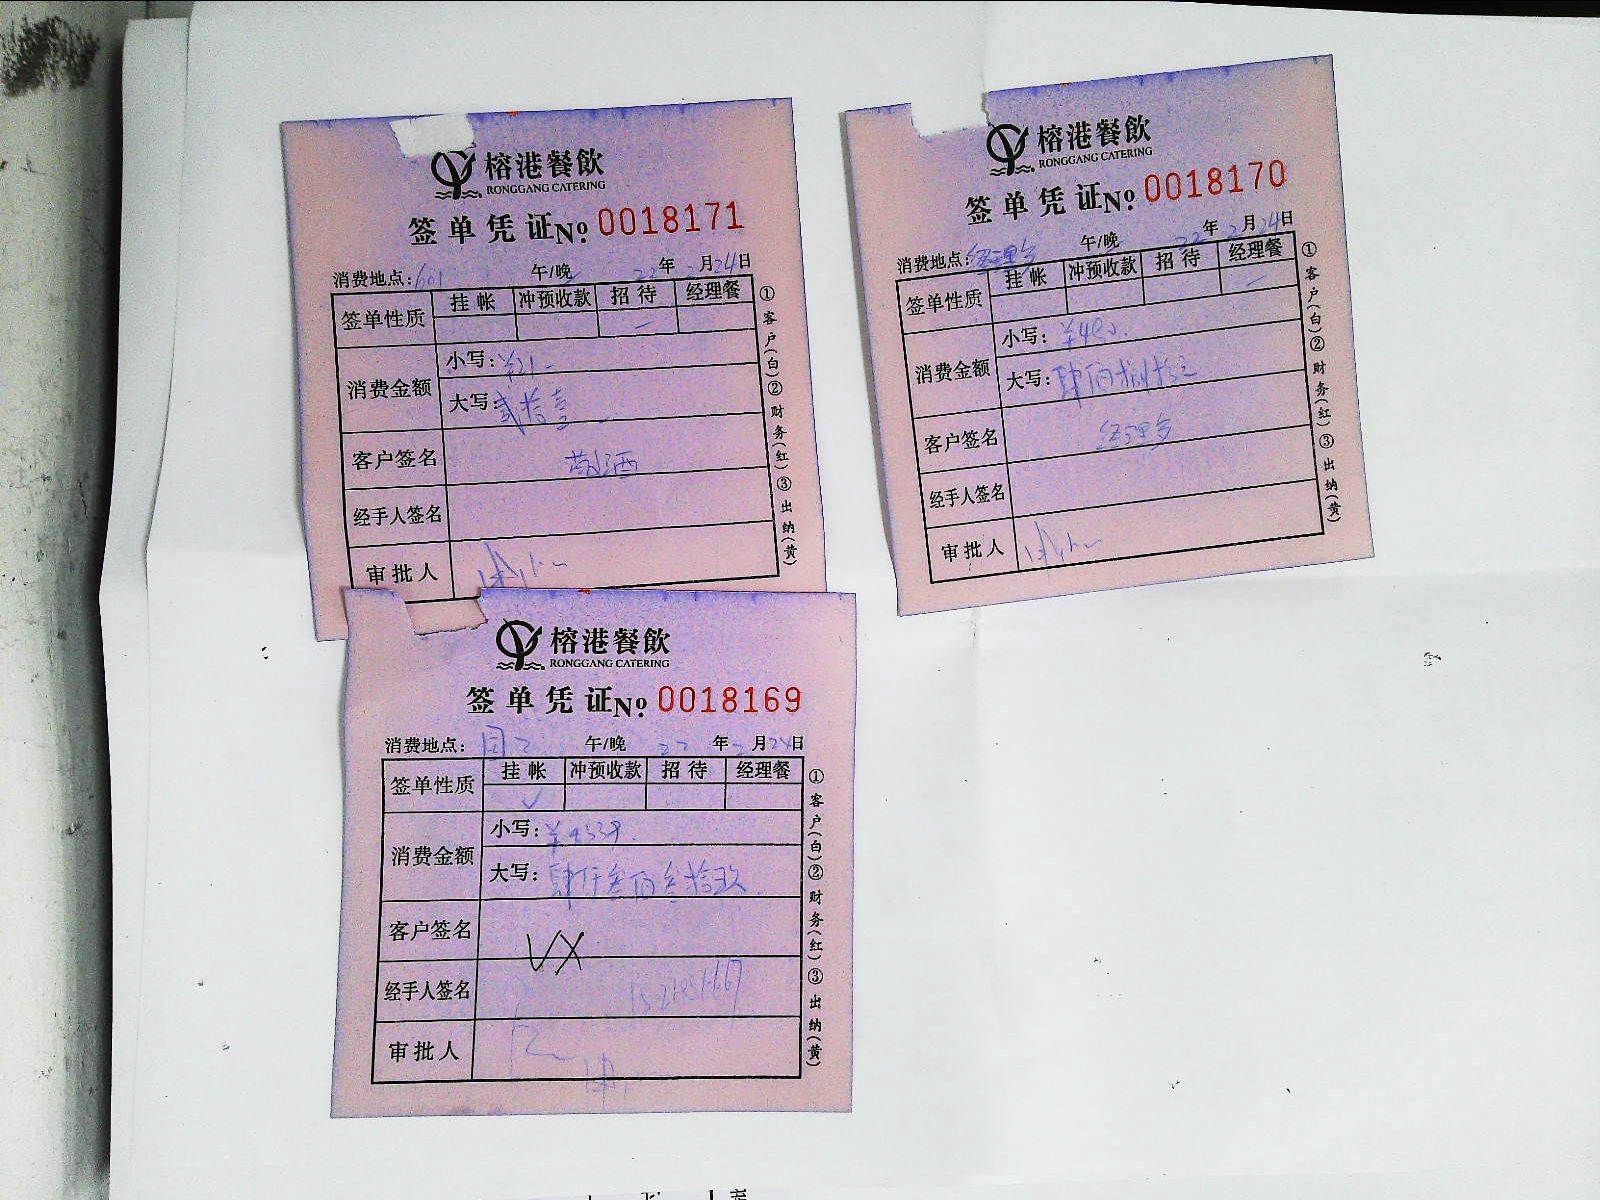 榕港餐飲
RONGGANG CATERING
签单凭证 No. 0018171
消费地点: 601 午/晚 22年2月24日
签单性质 挂帐 冲预收款 招待 经理餐
消费金额 小写: ¥21-
大写: 贰拾壹
客户签名
经手人签名
审批人
①客户(白)②财务(红)③出纳(黄)
榕港餐飲
RONGGANG CATERING
签单凭证 No. 0018170
消费地点: 经理餐 午/晚 22年2月24日
签单性质 挂帐 冲预收款 招待 经理餐
消费金额 小写:
大写:
客户签名 经理餐
经手人签名
审批人
①客户(白)②财务(红)③出纳(黄)
榕港餐飲
RONGGANG CATERING
签单凭证 No. 0018169
消费地点: 午/晚 22年2月24日
签单性质 挂帐 冲预收款 招待 经理餐
✓
消费金额 小写: ¥4339.
大写: 肆仟叁佰叁拾玖
客户签名 VX
经手人签名
审批人
①客户(白)②财务(红)③出纳(黄)